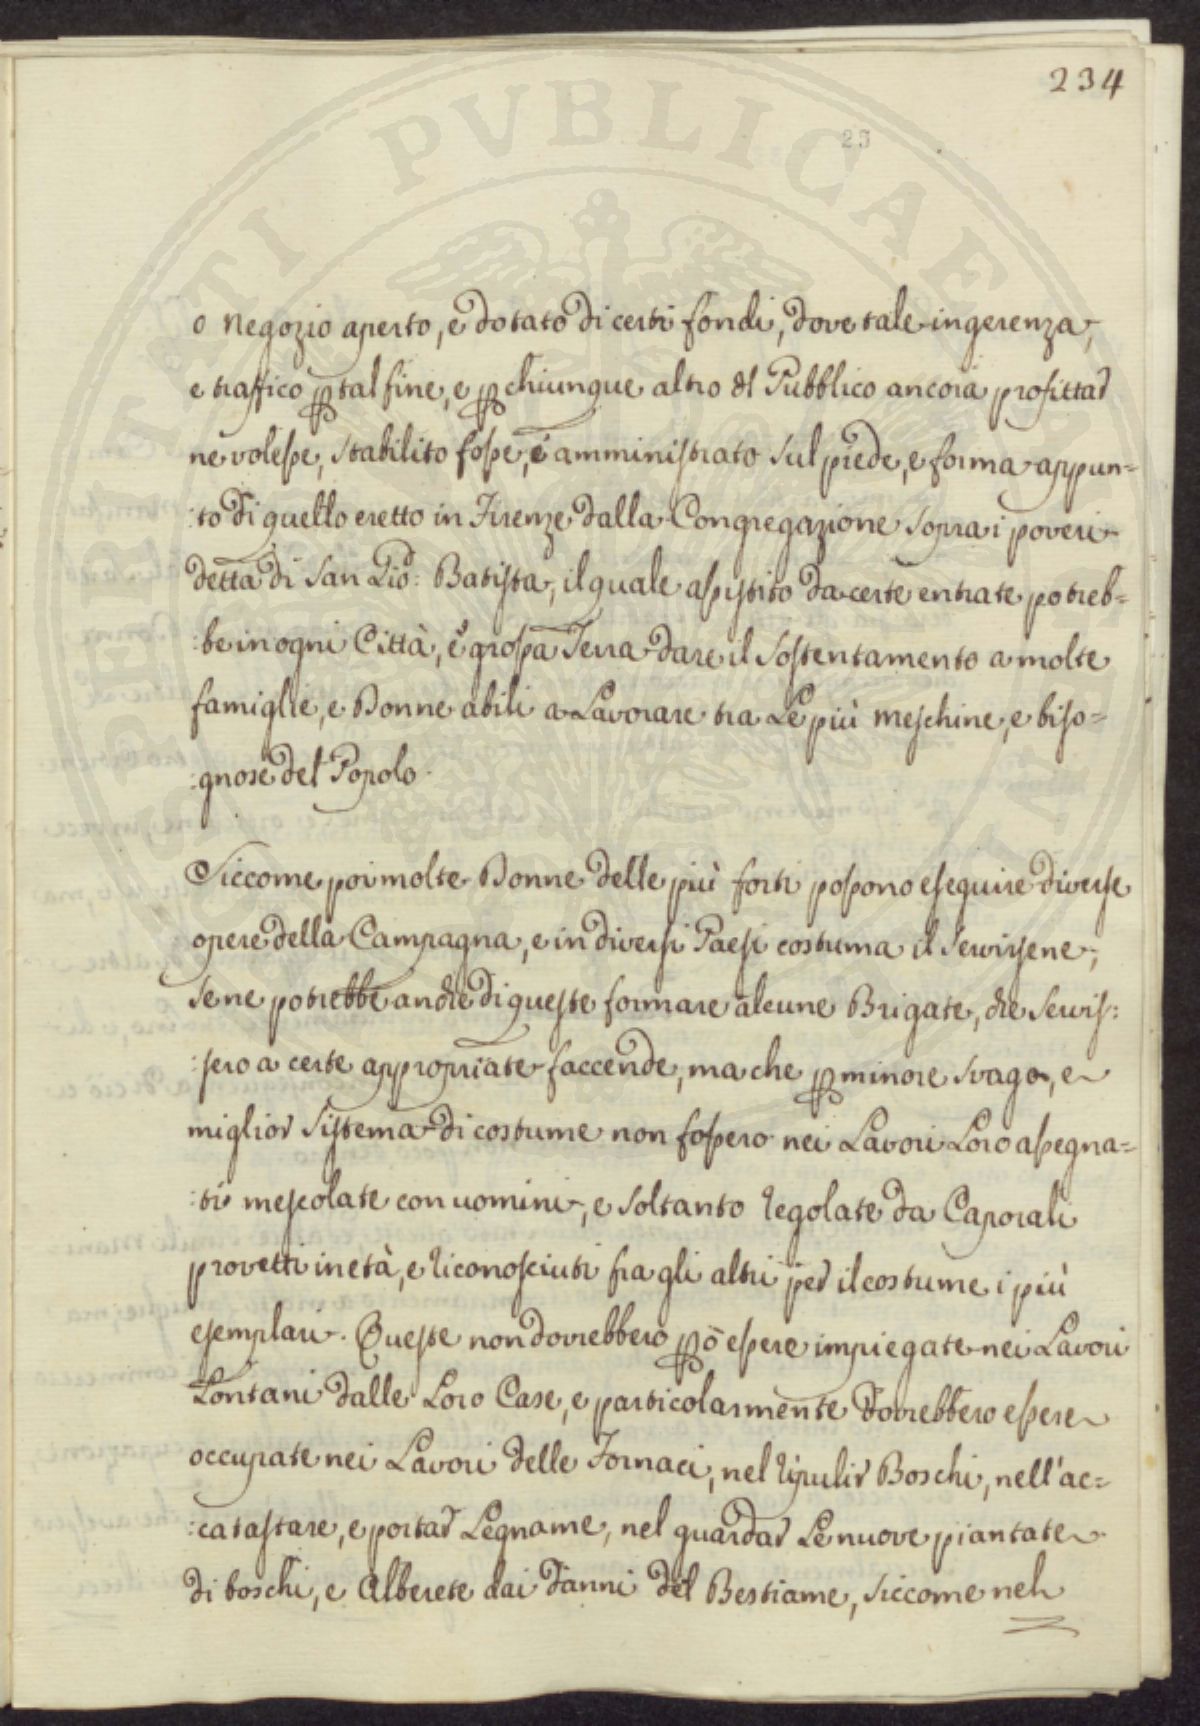 234
25
PERITATI PVBLICAE
o negozio aperto, e dotato di certi fondi, dove tale ingerenza,
e traffico p tal fine, e p chiunque altro del Pubblico ancora profittar
ne volesse, stabilito fosse, é amministrato sul piede, e forma appun=
:to di quello eretto in Firenze dalla Congregazione sopra i poveri
detta di San Gio: Batista, il quale assistito da certe entrate potreb=
:be in ogni Città, è grossa Terra dare il sostentamento a molte
famiglie, e Donne abili a Lavorare tra Le più meschine, e biso=
:gnose del Popolo.
Siccome poi molte Donne delle più forti possono eseguire diverse
opere della Campagna, e in diversi Paesi costuma il servirsene,
se ne potrebbe anche di queste formare alcune Brigate, che servis:
:sero a certe appropriate faccende, ma che p minore svago, e
miglior sistema di costume non fossero nei Lavori Loro assegna=
:ti mescolate con uomini, e soltanto regolate da Caporali
provetti in età, e riconosciuti fra gli altri per il costume i più
esemplari. Queste non dovrebbero pò essere impiegate nei Lavori
Lontani dalle Loro Case, e particolarmente dovrebbero essere
occupate nei Lavori delle Fornaci, nel ripulir Boschi, nell'ac=
:catastare, e portar Legname, nel guardar Le nuove piantate
di boschi, e Alberete dai danni del Bestiame, siccome nel